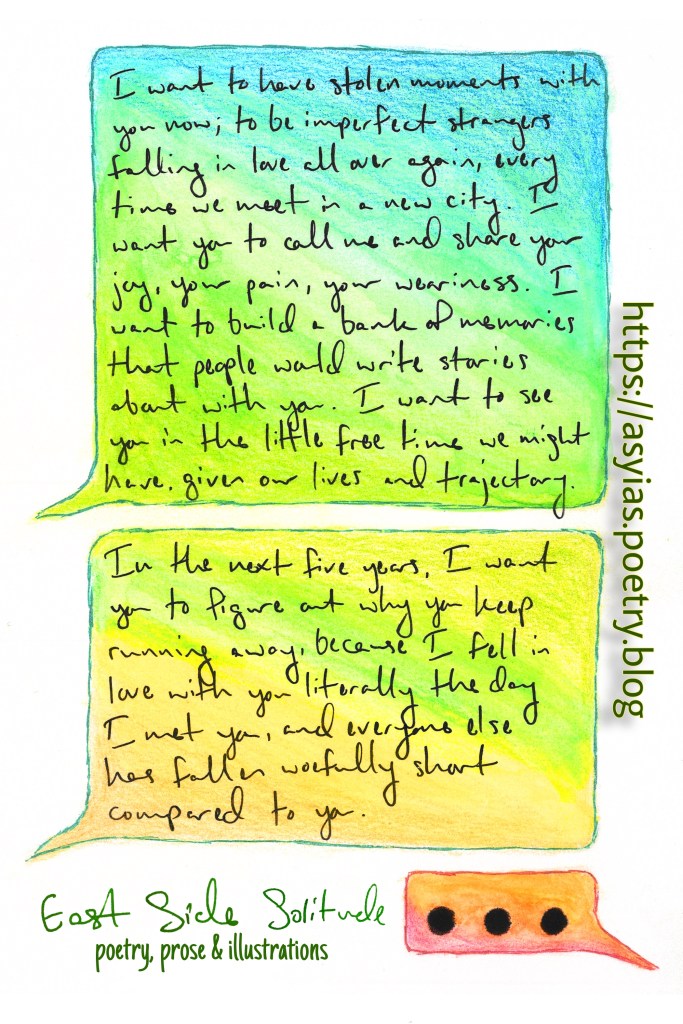 I want to have stolen moments with
you now; to be imperfect strangers
falling in love all over again, every
time we meet in a new city. I
want you to call me and share your
joy, your pain, your weariness. I
want to build a bank of memories
that people would write stories
about with you. I want to see
you in the little free time we might
have, given our lives and trajectory.
In the next five years, I want
you to figure out why you keep
running away, because I fell in
love with you literally the day
I met you, and everyone else
has fallen woefully short
compared to you.
https://asyias.poetry.blog
East Side Solitude
poetry, prose & illustrations